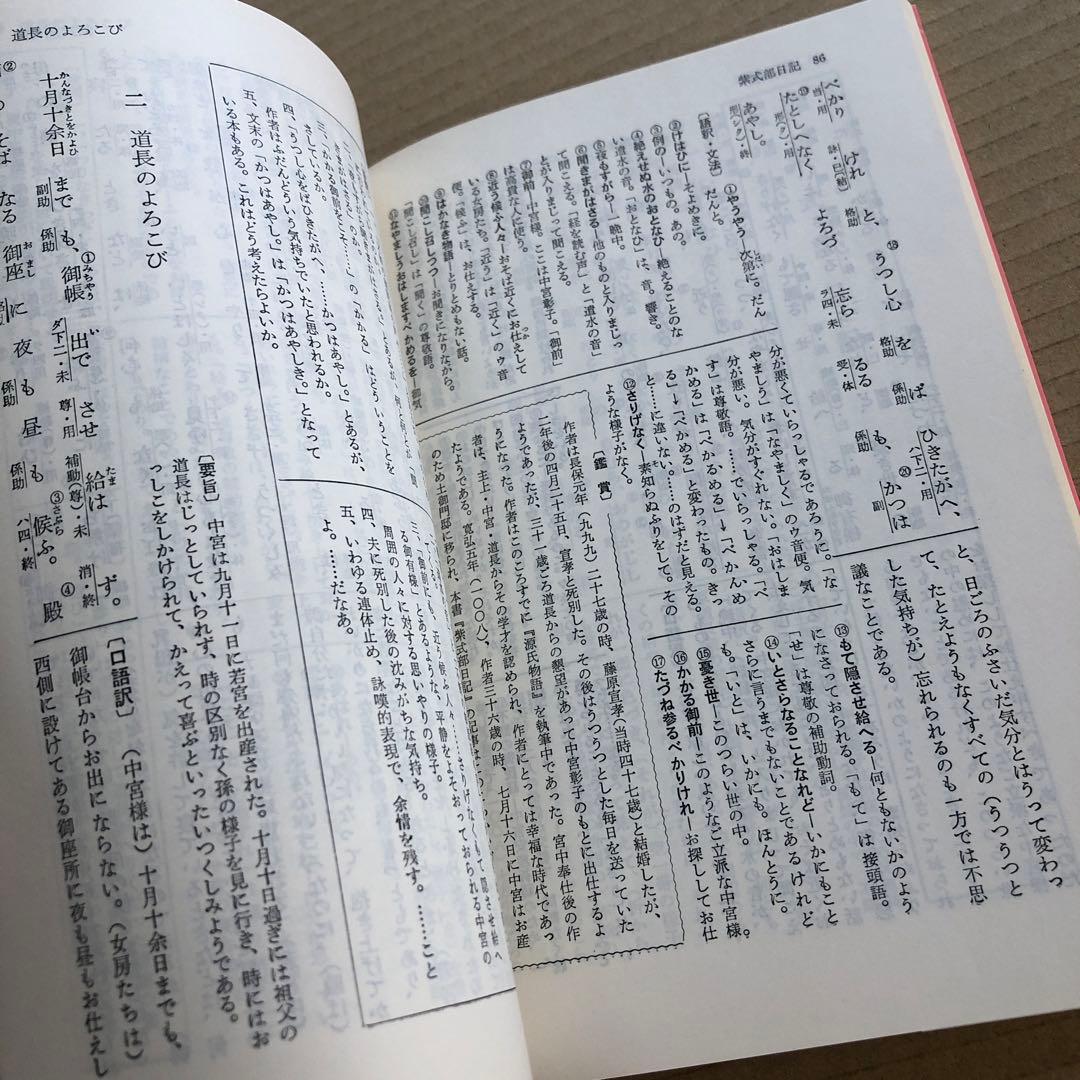 紫式部日記　86
べかり
当・用
けれ
詠・已(結)
と、
格助
⑱うつし心
を
格助
ば
係助
ひきたがへ、
ハ下二・用
⑲たとしへなく
ク・用
よろづ
忘ら
ラ四・未
るる
受・体
も、
係助
⑳かつは
副
あやし。
形シク・終
と、日ごろのふさいだ気分とはうって変わっ
て、たとえようもなくすべての（うつうつと
した気持ちが）忘れられるのも一方では不思
議なことである。
〔語釈・文法〕①やうやう―次第に。だん
だんと。
②けはひに―そよめきに。
③例の―いつもの。あの。
④絶えせぬ水のおとなひ―絶えることのな
い遣水の音。「おとなひ」は、音。響き。
⑤夜もすがら―一晩中。
⑥聞きまがはさる―他のものと入りまじっ
て聞こえる。「経を読む声」と「遣水の音」
とが入りまじって聞こえる。
⑦御前―中宮様。ここは中宮彰子。「御前」
は高貴な人に使う。
⑧近う候ふ人々―おそば近くにお仕えして
いる女房たち。「近う」は「近く」のウ音
便。「候ふ」は、お仕えする。
⑨はかなき物語―とりとめもない話。
⑩聞こし召しつつ―お聞きになりながら。
「聞こし召し」は「聞く」の尊敬語。
⑪なやましうおはしますべかめるを―御気
分が悪くていらっしゃるであろうに。「な
やましう」は「なやましく」のウ音便。気
分が悪い。気分がすぐれない。「おはしま
す」は尊敬語。……でいらっしゃる。「べ
かめる」は「べかるめる」→「べかんめ
る」→「べかめる」と変わったもの。きっ
と……に違いない。……のはずだと見える。
⑫さりげなく―素知らぬふりをして。その
ような様子がなく。
⑬もて隠させ給へる―何ともないかのよう
になさっておられる。「もて」は接頭語。
「せ」は尊敬の補助動詞。
⑭いとさらなることなれど―いかにもこと
さらに言うまでもないことであるけれど
も。「いと」は、いかにも。ほんとうに。
⑮憂き世―このつらい世の中。
⑯かかる御前―このようなご立派な中宮様。
⑰たづね参るべかりけれ―お探ししてお仕
〔鑑賞〕
作者は長保元年（九九九）二十七歳の時、藤原宣孝（当時四十七歳）と結婚したが、
二年後の四月二十五日、宣孝と死別した。その後はうつうつとした毎日を送っていた
ようであったが、三十一歳ごろ道長からの懇望があって中宮彰子のもとに出仕するよ
うになった。作者はこのころすでに『源氏物語』を執筆中であった。宮中奉仕後の作
者は、主上・中宮・道長からその学才を認められ、作者にとっては幸福な時代であっ
たようである。寛弘五年（一〇〇八）、作者三十六歳の時、七月十六日に中宮はお産
のため土御門邸に移られ、本書『紫式部日記』の記事は
道長のよろこび
さしているか。
三、「かかる御前をこそ……」の「かかる」はどういうことを
四、「うつし心をばひきたがへ、……かつはあやし。」とあるが、
作者はふだんどういう気持ちでいたと思われるか。
五、文末の「かつはあやし。」は「かつはあやしき。」となって
いる本もある。これはどう考えたらよいか。
る御有様」とあるような、平静をよそおっておられる中宮の
周囲の人々に対する思いやりの様子。
四、夫に死別した後の沈みがちな気持ち。
五、いわゆる連体止め、詠嘆的表現で、余情を残す。……こと
よ。……だなあ。
二　道長のよろこび
〔要旨〕　中宮は九月十一日に若宮を出産された。十月十日過ぎには祖父の
道長はじっとしていられず、時の区別なく孫の様子を見に行き、時にはお
っしこをしかけられて、かえって喜ぶといったいつくしみようである。
かんなづきとをかよひ
十月十余日
まで
副助
も、
係助
①みちやう
御帳
い
出で
ダ下二・未
させ
尊・用
たま
給は
補動(尊)・未
ず。
消・終
②
そば
なる
おまし
御座
に
夜
も
係助
昼
も
係助
③さぶら
候ふ。
ハ四・終
④
殿
〔口語訳〕　（中宮様は）十月十余日までも、
御帳台からお出にならない。（女房たちは）
西側に設けてある御座所に夜も昼もお仕えし